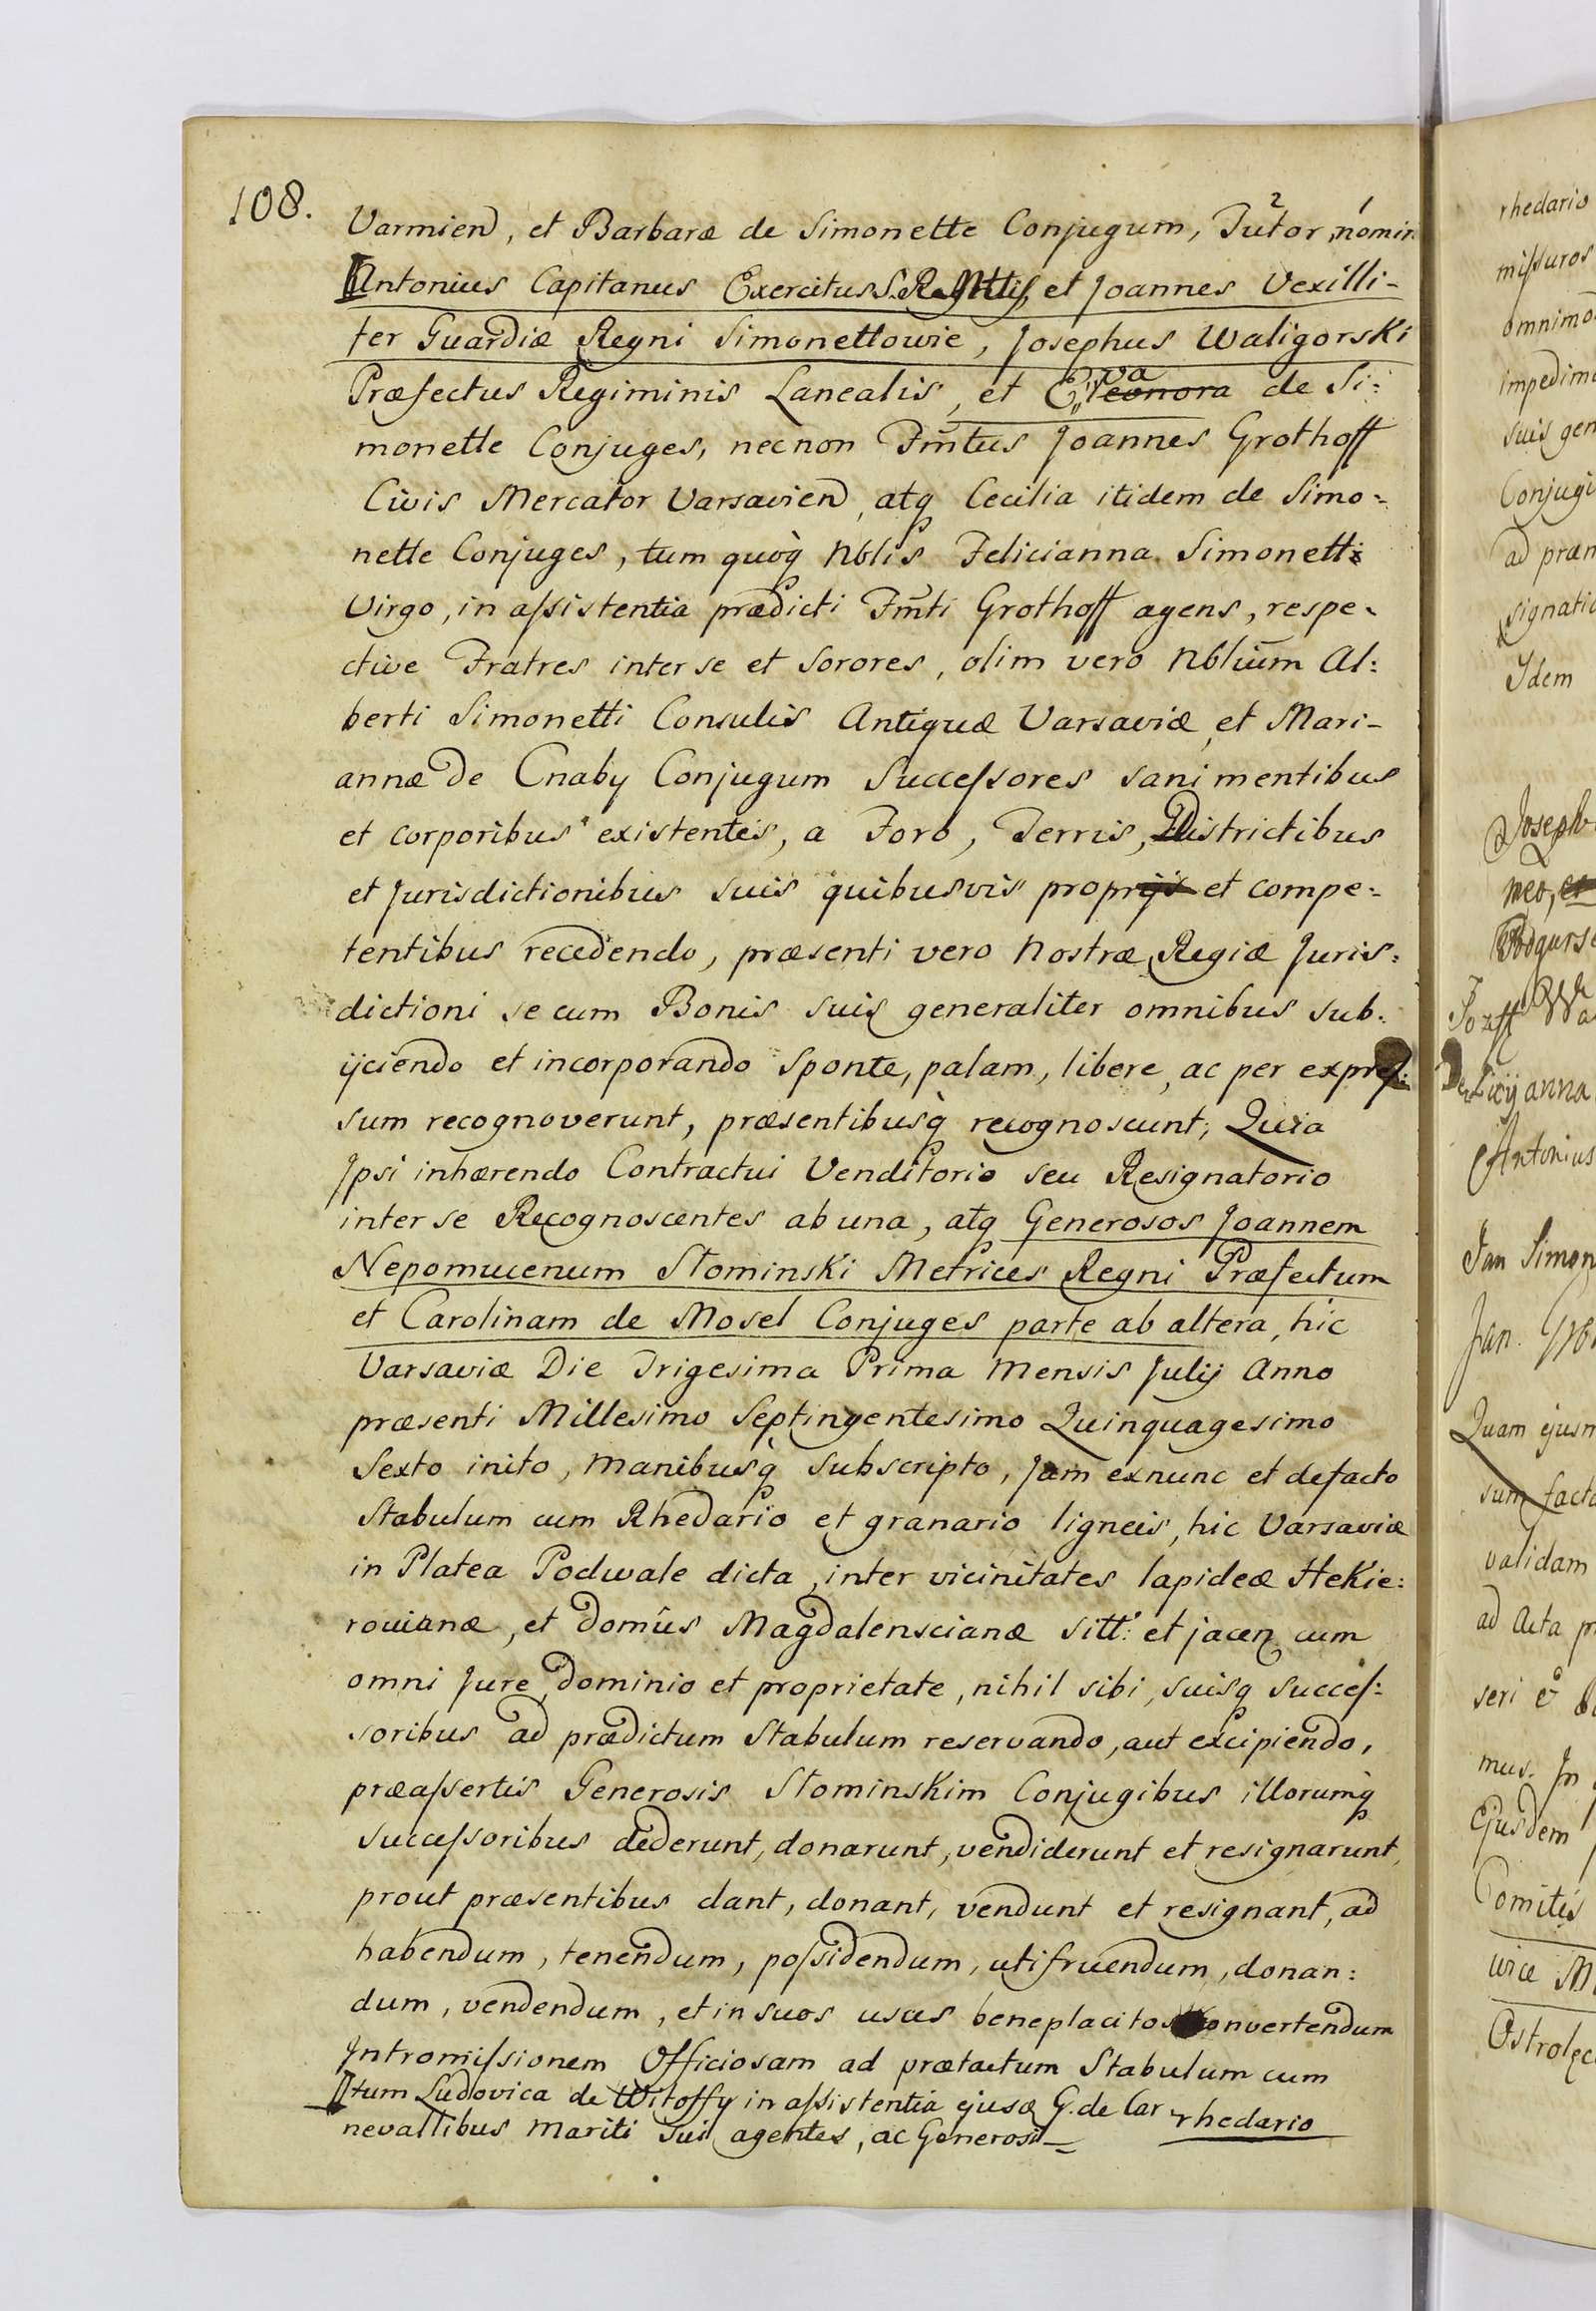 108.
Varmien̄, et Barbaræ de Simonette Conjugum, Tutor 2 nomin 1
Antonius Capitanus Exercitus S. R. Mttis, et Joannes Vexilli-
fer Guardiæ Regni Simonettowie, Josephus Waligorski
Præfectus Regiminis Lanealis, et Eleonora va de Si:
monette Conjuges, necnon Fm̄tus Joannes Grothoff
Civis Mercator Varsavien̄, atq̨ Cecilia itidem de Simo=
nette Conjuges, tum quoq̀ Nblis Felicianna Simonetti
Virgo, in aſsistentia prædicti Fm̄ti Grothoff agens, respe-
ctive Fratres inter se et Sorores, olim vero Nbliūm Al:
berti Simonetti Consulis Antiquæ Varsaviæ, et Mari-
annæ de Cnaby Conjugum Succeſsores sani mentibus
et corporibus existentes, a Foro, Terris, Districtibus
et Jurisdictionibus suis quibusvis proprijs et compe=
tentibus recedendo, præsenti vero Nostræ Regiæ Juris=
dictioni se cum Bonis suis generaliter omnibus sub.
ijciendo et incorporando sponte, palam, libere, ac per expreſ:
sum recognoverunt, præsentibusq̀ recognoscunt; Quia
Ipsi inhærendo Contractui Venditorio seu Resignatorio
inter se Recognoscentes ab una, atq̨ Generosos Joannem
Nepomucenum Słominski Metrices Regni Præfectum
et Carolinam de Mosel Conjuges parte ab altera, hic
Varsaviæ Die Trigesima Prima Mensis Julij Anno
præsenti Millesimo Septingentesimo Quinquagesimo
Sexto inito, manibusq̀ subscripto, jam exnunc et defacto
Stabulum cum Rhedario et granario ligneis, hic Varsaviæ
in Platea Podwale dicta, inter vicinitates lapideæ Hekie:
rovianæ, et domûs Magdalenscianæ sitt: et jacen̨ cum
omni Jure, dominio et proprietate, nihil sibi, suisq̨ Succeſ:
soribus ad prædictum Stabulum reservando, aut excipiendo,
præaſsertis Generosis Słominskim Conjugibus illorumq̨
Succeſsoribus dederunt, donarunt, vendiderunt et resignarunt,
prout præsentibus dant, donant, vendunt et resignant, ad
habendum, tenendum, poſsidendum, utifruendum, donan:
dum, vendendum, et in suos usus beneplacitos convertendum
Intromiſsionem Officiosam ad prætactum Stabulum cum
tum Ludovica de Witoffy in aſsistentia ejusd̄ G. de Car
nevallibus Mariti sui agentes, ac Generosi
rhedario
rhedario
miſsuros
omnimo
impedim
suis gen
Conjugi
ad præn
signatio
Idem
Joseph
neo, et
Podgurs
Jozff Wa
Felicyanna
Antonius
Jan Simon
Jan. Gro
Quam ejusm
sum facta
validam
ad Acta p
seri &
mus. In
Ejusdem
Comitis
wice M
Ostrolęc